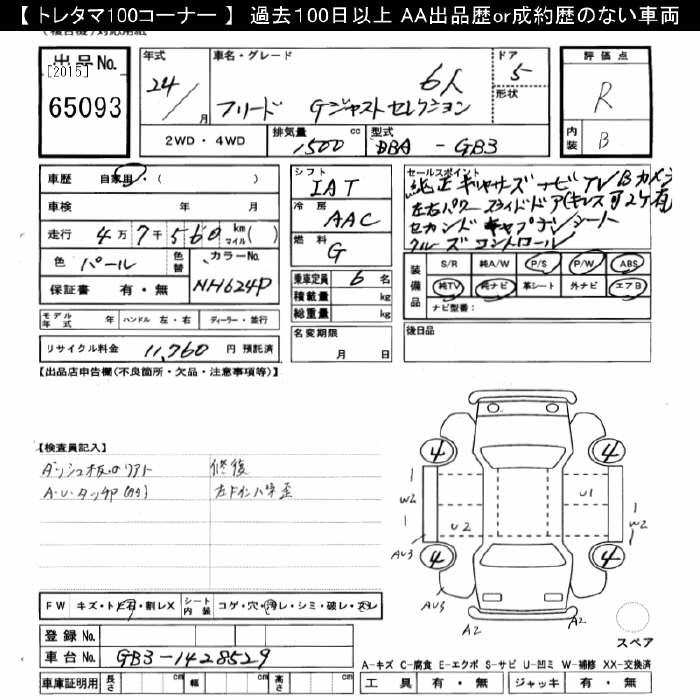 【 トレタマ100コーナー 】 過去100日以上 AA出品歴or成約歴のない車両
出品No.
[2015]
65093
年式
24/
月
車名・グレード
6人
フリード Gジャストセレクション
ドア
5
形状
評価点
R
内装
B
2WD・4WD
排気量
1500
cc
型式
DBA - GB3
車歴
自家用・( )
車検
年 月
走行
4万7千560
km
マイル
( )
色
パール
色替
カラーNo.
NH624P
保証書
有・無
シフト
IAT
冷房
AAC
燃料
G
乗車定員
6名
積載量
kg
総重量
kg
セールスポイント
純正ギャザーズナビTV Bカメラ
左右パワースライドドア(キーレス可2ケ有
セカンドキャプテンシート
クルーズコントロール
装備品
S/R
純A/W
P/S
P/W
ABS
純TV
純ナビ
革シート
外ナビ
エアB
ナビ型番:
モデル年式
年
ハンドル
左・右
ディーラー・並行
リサイクル料金
11,760
円 預託済
名変期限
月 日
後日品
【出品店申告欄(不良箇所・欠品・注意事項等)】
【検査員記入】
修復
A・U・タッチP
左ドインパネ歪
4
4
4
4
W2
U2
U1
W2
AU3
AU3
A2
A2
スペア
FW
キズ・ト
石・割レX
シート内装
コゲ・穴・汚レ・シミ・破レ・スレ
登録No.
車台No.
GB3-1428529
車庫証明用
長さ
cm
幅
cm
高さ
cm
A-キズ C-腐食 E-エクボ S-サビ U-凹ミ W-補修 XX-交換済
工具
有・無
ジャッキ
有・無